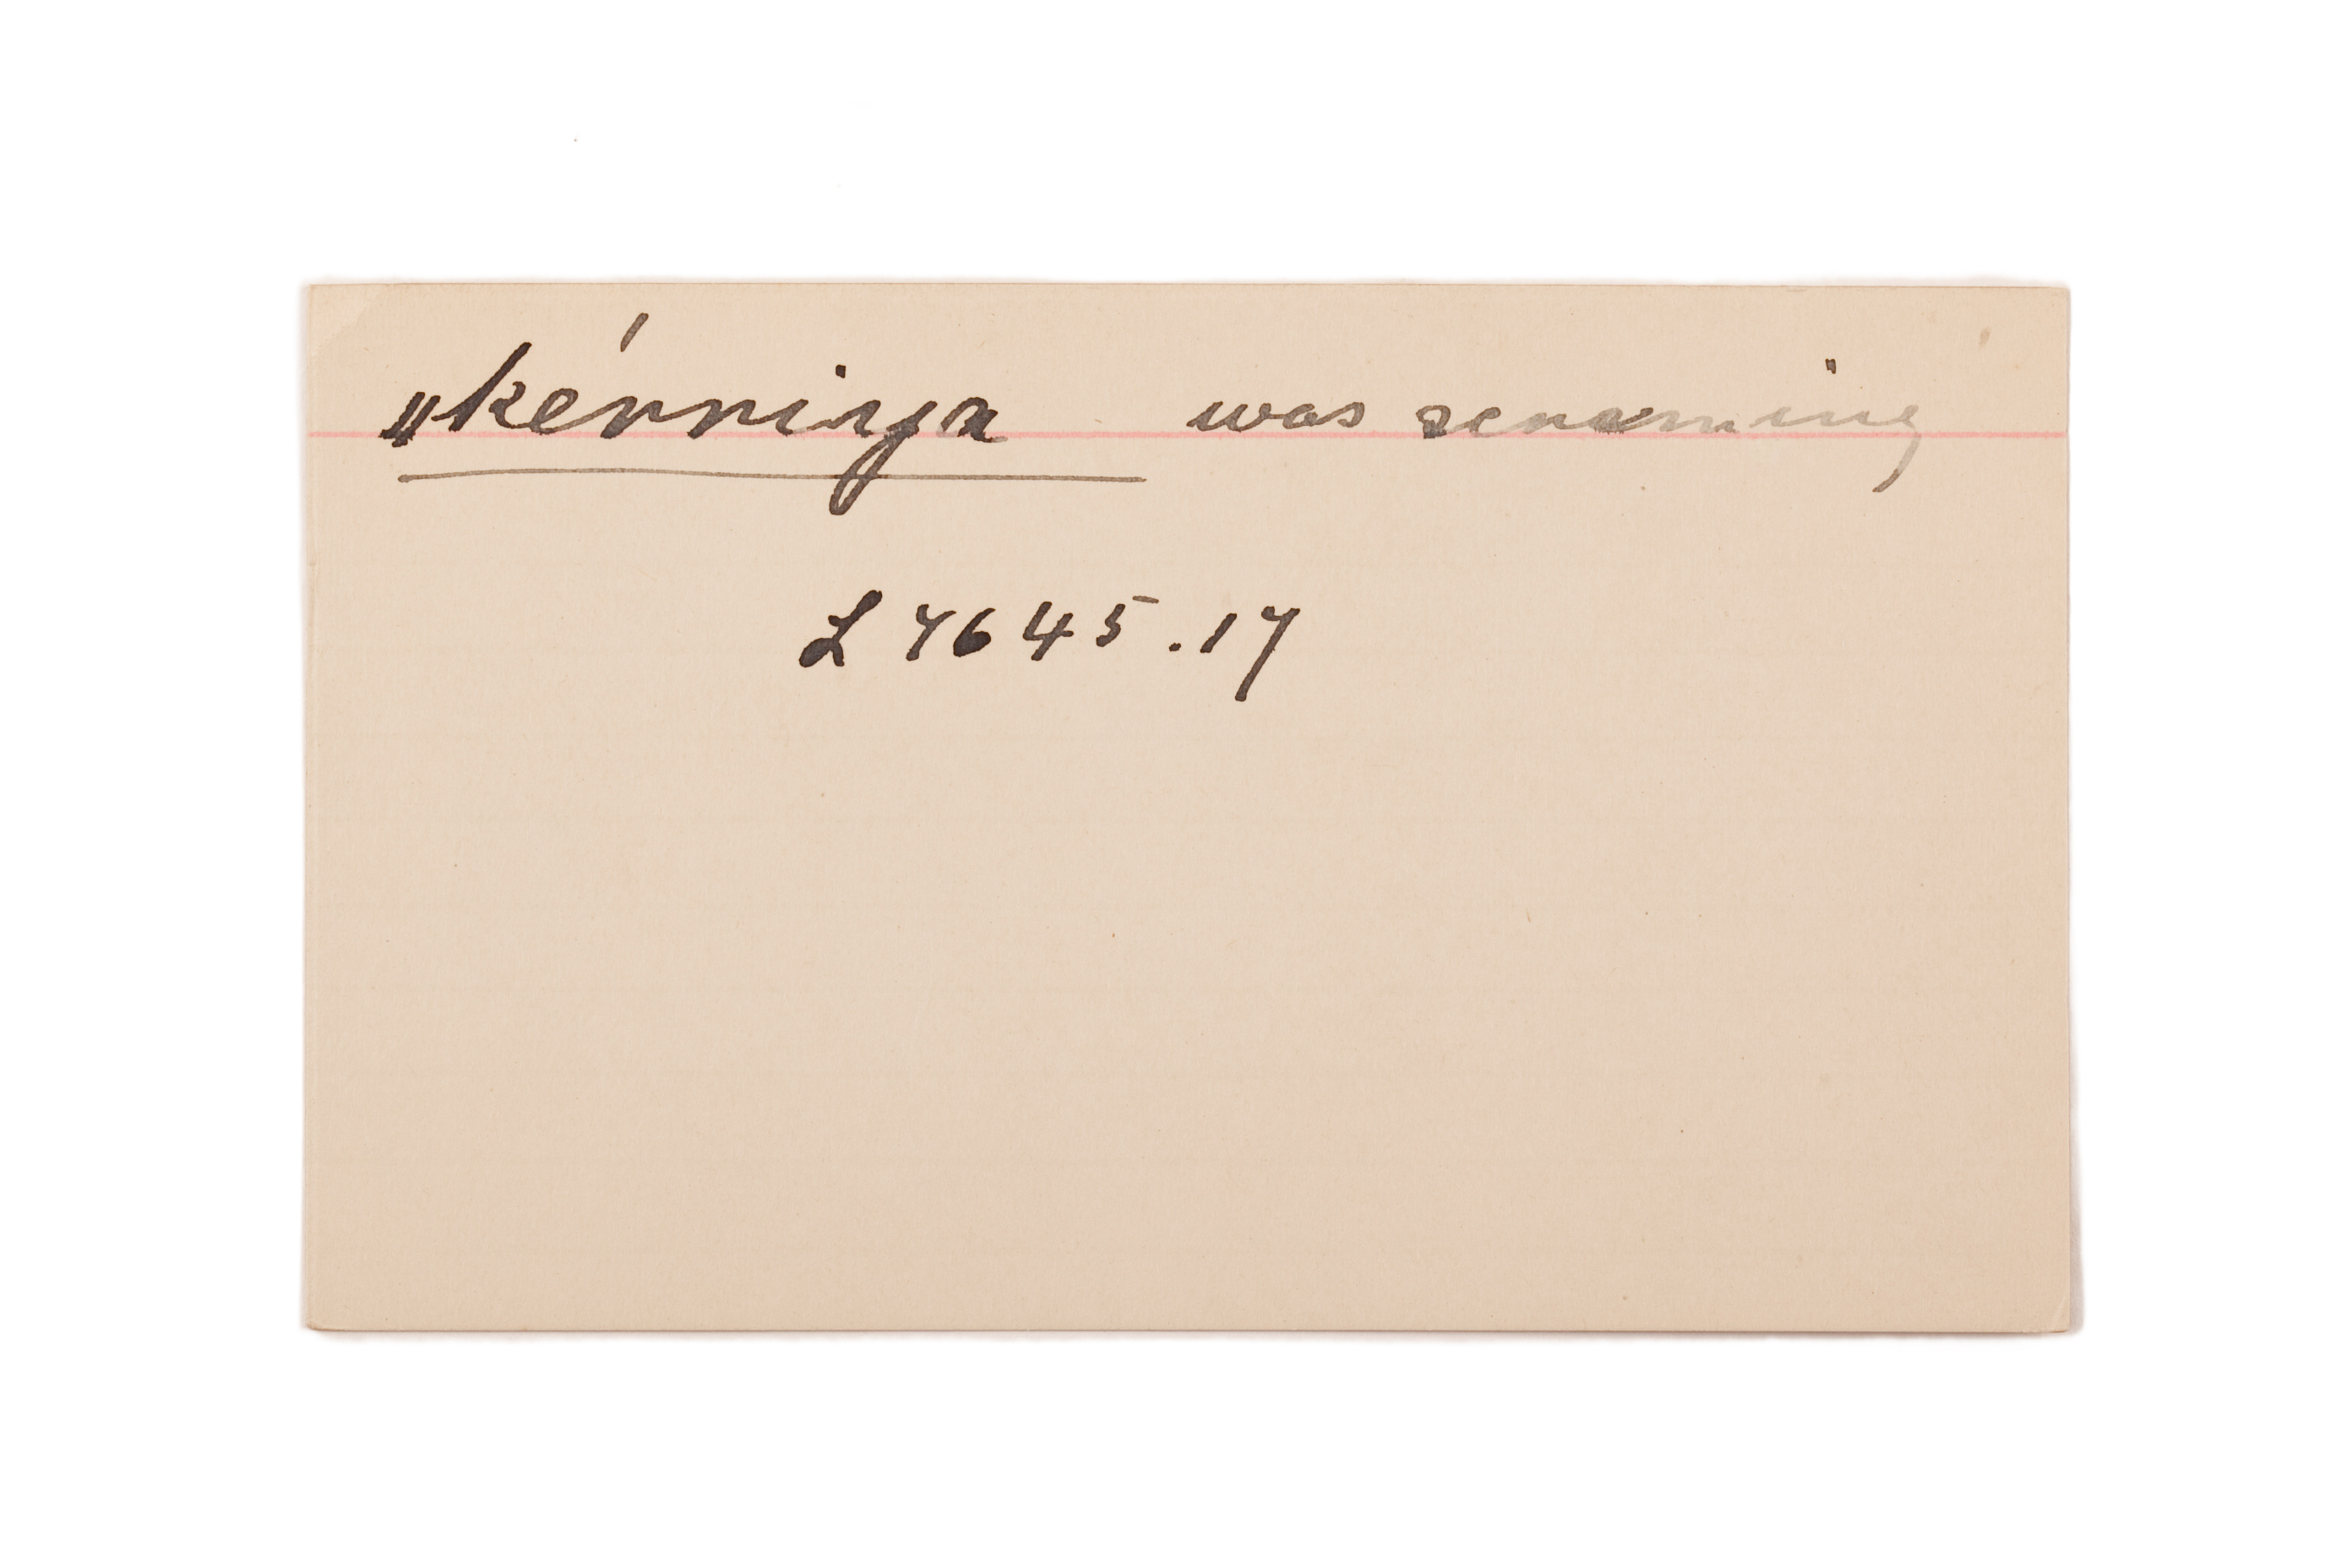 ǁkérrirya was screaming
L 7645.17